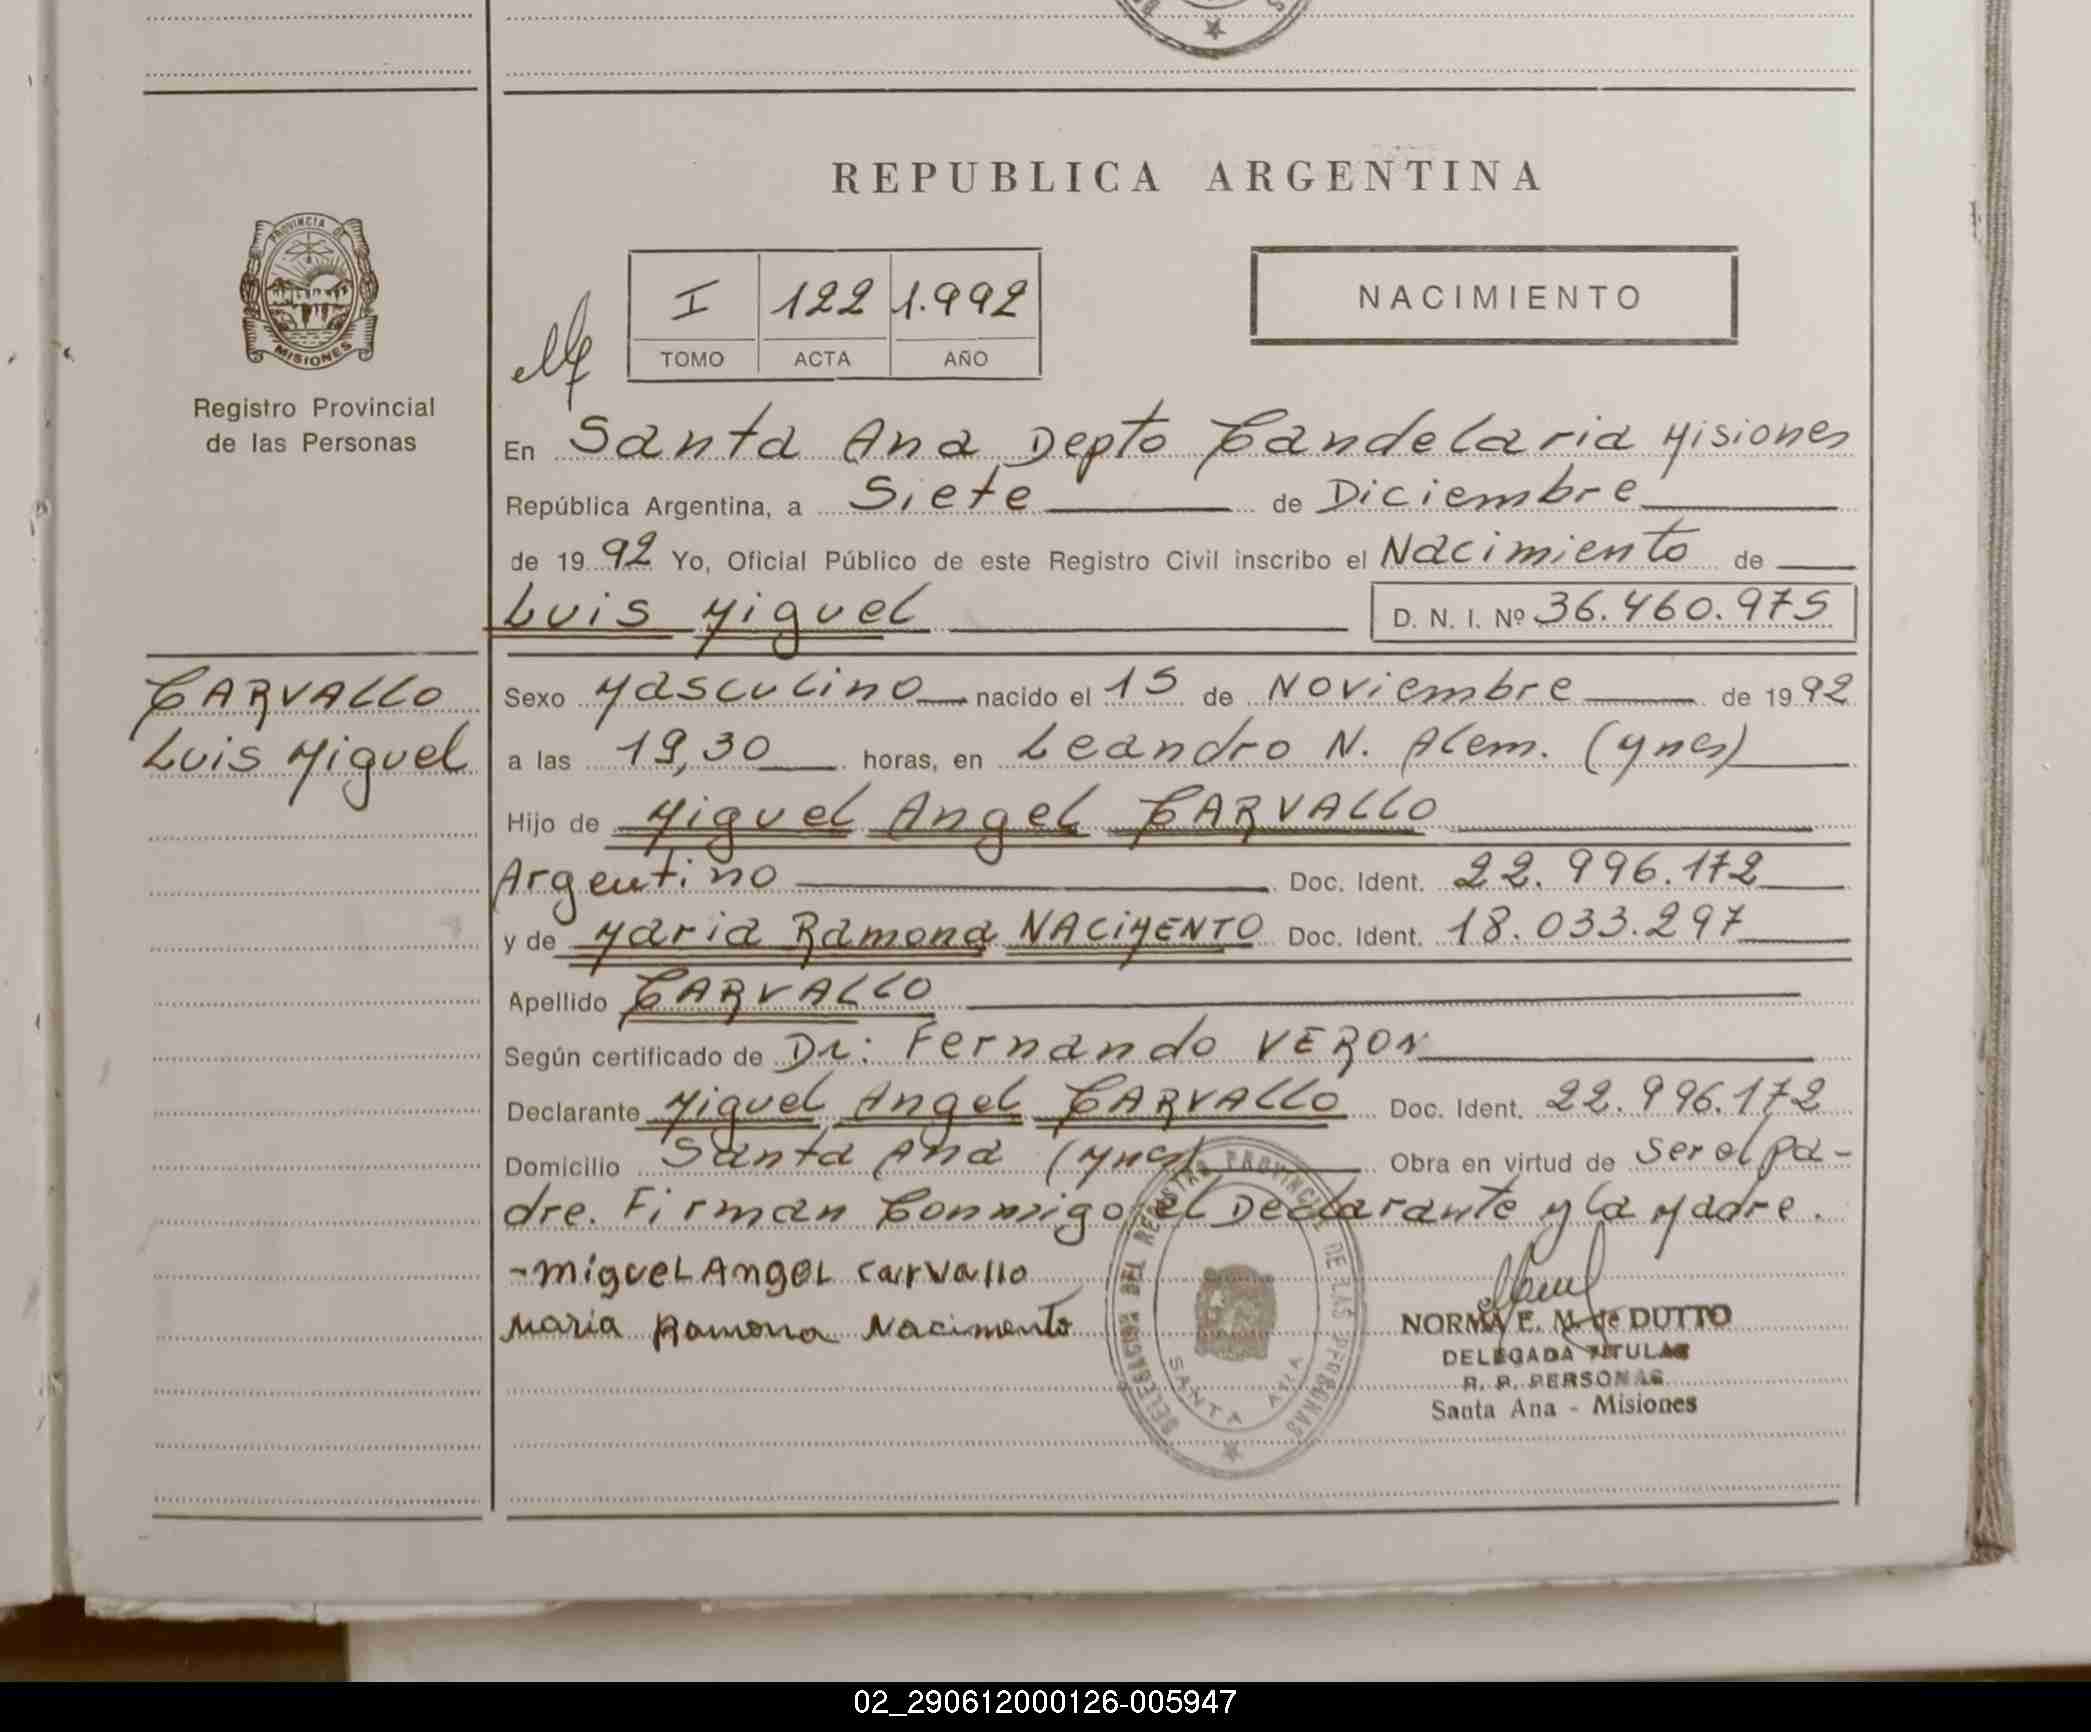 REPUBLICA ARGENTINA
PROVINCIA DE
MISIONES
Registro Provincial
de las Personas
I 122 1.992
TOMO ACTA AÑO
NACIMIENTO
En Santa Ana Depto Candelaria Misiones
República Argentina, a Siete de Diciembre
de 19 92 Yo, Oficial Público de este Registro Civil inscribo el Nacimiento de
Luis Miguel D. N. I. Nº 36.460.975
CARVALLO
Luis Miguel
Sexo Masculino nacido el 15 de Noviembre de 19 92
a las 19,30 horas, en Leandro N. Alem. (Mnes)
Hijo de Miguel Angel CARVALLO
Argentino Doc. Ident. 22.996.172
y de Maria Ramona NACIMENTO Doc. Ident. 18.033.297
Apellido CARVALLO
Según certificado de Dr: Fernando VERON
Declarante Miguel Angel CARVALLO Doc. Ident. 22.996.172
Domicilio Santa Ana (Mnes) Obra en virtud de Ser el pa-
dre. Firman Conmigo el Declarante y la Madre.
-Miguel Angel Carvallo
Maria Ramona Nacimento
DELEGACIA DEL REGISTRO PROVINCIAL DE LAS PERSONAS
SANTA ANA
NORMA E. M. de DUTTO
DELEGADA TITULAR
R. P. PERSONAS
Santa Ana - Misiones
02_290612000126-005947